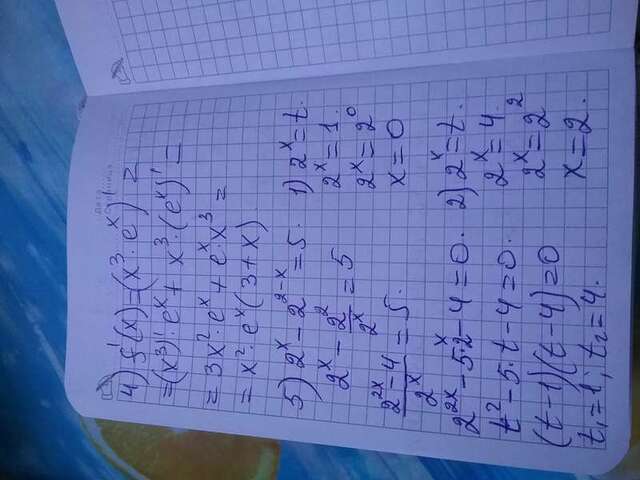 4) f'(x)=(x³·eˣ)'=
=(x³)'·eˣ + x³·(eˣ)'=
=3x²·eˣ + eˣ·x³=
=x²·eˣ(3+x).
5) 2ˣ - 2²⁻ˣ = 5.
2ˣ - 2²/2ˣ = 5
(2²ˣ - 4)/2ˣ = 5.
2²ˣ - 5·2ˣ - 4 = 0.
t² - 5·t - 4 = 0.
(t-1)(t-4)=0
t₁=1; t₂=4.
1) 2ˣ=t.
2ˣ=1.
2ˣ=2⁰
x=0
2) 2ˣ=t.
2ˣ=4.
2ˣ=2²
x=2.